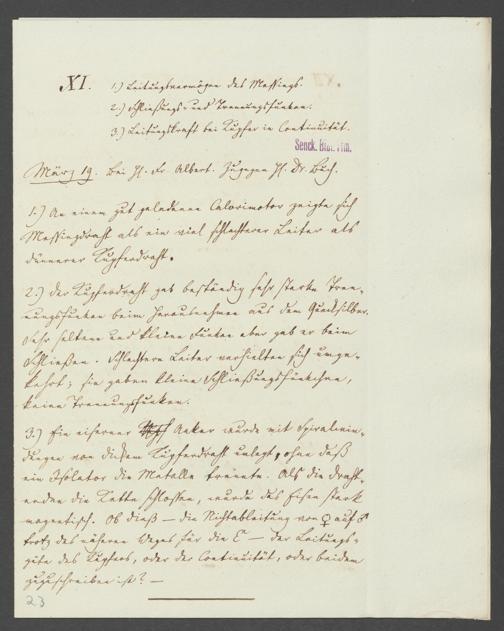 XI. 1.) Leitungsvermögen des Messings.
2.) Schließungs- und Trennungsfunken.
3.) Leitungskraft bei Kupfer in Continuität.
Senck. Bibl. Ffm.
März 19. Bei H. Dr. Albert. Zugegen H. Dr. Buch.
1.) An einem gut geladenen Calorimotor zeigte sich
Messingdraht als ein viel schlechterer Leiter als
dünnerer Kupferdraht.
2.) Der Kupferdraht gab beständig sehr starke Tren-
nungsfunken beim Herausnehmen aus dem Quecksilber.
Sehr seltene und kleine Funken aber gab er beim
Schließen. Schlechtere Leiter verhielten sich umge-
kehrt; sie gaben kleine Schließungsfünkchen,
keine Trennungsfunken.
3.) Ein eiserner Anker wurde mit Spiralwin-
dungen von dickem Kupferdraht umlegt, ohne daß
ein Isolator die Metalle trennte. Als die Draht-
enden die Kette schlossen, wurde das Eisen stark
magnetisch. Ob dieß — die Nichtableitung von ♀ auf ♂
trotz des näheren Weges für die E — der Leitungs-
güte des Kupfers, oder der Continuität, oder beidem
zuzuschreiben ist? —
23